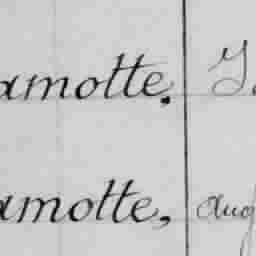 amotte. J.
amotte, aug